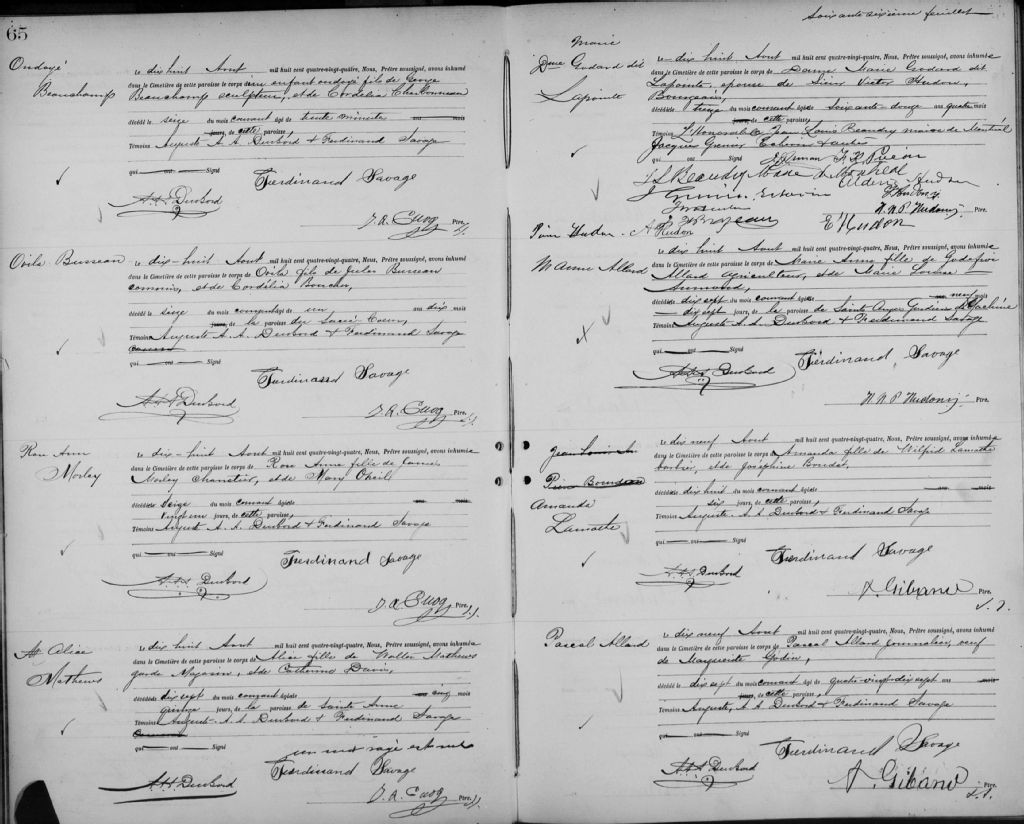 65
Ondoyé
Beauchamp
Le dix huit Aout mil huit cent quatre-vingt-quatre, Nous, Prêtre soussigné, avons inhumé
dans le Cimetière de cette paroisse le corps d'un enfant ondoyé fils de George
Beauchamp sculpteur, et de Cordélia Charbonneau
décédé le seize du mois courant âgé de trente minutes ans mois
jours, de cette paroisse,
Témoins Auguste A. A. Dubord & Ferdinand Savage
qui ont Signé
Ferdinand Savage
A A A Dubord
J. A. Cuoq Ptre. s.s.
Ovila Bureau
Le dix-huit Aout mil huit cent quatre-vingt-quatre, Nous, Prêtre soussigné, avons inhumé
dans le Cimetière de cette paroisse le corps de Ovila fils de Jules
commis, et de Cordélia Boucher,
décédé le seize du mois courant âgé de un an dix mois
jours, de la paroisse du Sacré Coeur,
Témoins Auguste A. A. Dubord & Ferdinand Savage
qui ont Signé
Ferdinand Savage
A A A Dubord
J. A. Cuoq Ptre. s.s.
Rose Ann
Morley
Le dix-huit Aout mil huit cent quatre-vingt-quatre, Nous, Prêtre soussigné, avons inhumé
dans le Cimetière de cette paroisse le corps de Rose Anne fille de James
Morley charretier, et de Mary
décédée le seize du mois courant âgée de ans mois
vingt un jours, de cette paroisse,
Témoins Auguste A. A. Dubord & Ferdinand Savage
qui ont Signé
Ferdinand Savage
A. A. A. Dubord
J. A. Cuoq Ptre. s.s.
Alice
Mathews
Le dix huit Aout mil huit cent quatre-vingt-quatre, Nous, Prêtre soussigné, avons inhumé
dans le Cimetière de cette paroisse le corps de Alice fille de Walter Mathews
garde Magasin, et de Catherine Davis,
décédée le dix sept du mois courant âgée de ans cinq mois
quinze jours, de la paroisse de Sainte Anne
Témoins Auguste A. A. Dubord & Ferdinand Savage
qui ont Signé
un mot rayé est nul
Ferdinand Savage
A A A Dubord
J. A. Cuoq Ptre. s.s.
Soixante dixième feuillet
Marie
Dame Godard dit
Lapointe
Le dix huit Aout mil huit cent quatre-vingt-quatre, Nous, Prêtre soussigné, avons inhumé
dans le Cimetière de cette paroisse le corps de Dame Marie Godard dit
Lapointe, épouse de Sieur Victor Hudon,
Bourgeois,
décédée le treize du mois courant âgée de soixante douze ans quatre mois
jours, de cette paroisse,
Témoins L'Honorable Jean Louis Beaudry maire de Montréal
Jacques Grenier Echevin & autres
qui ont Signé
J L Beaudry Maire de Montréal
J Grenier Echevin
E Hudon
A Hudon
Ptre.
M Anne Allard
Le dix huit Aout mil huit cent quatre-vingt-quatre, Nous, Prêtre soussigné, avons inhumé
dans le Cimetière de cette paroisse le corps de Marie Anne fille de Godefroi
Allard agriculteur, et de Marie Louise
décédée le dix sept du mois courant âgée de ans neuf mois
dix sept jours, de la paroisse de Saints Anges Gardiens de Lachine
Témoins Auguste A. A. Dubord & Ferdinand Savage
qui ont Signé
Ferdinand Savage
A A A Dubord
Ptre.
Amanda
Lamothe
Le dix neuf Aout mil huit cent quatre-vingt-quatre, Nous, Prêtre soussigné, avons inhumé
dans le Cimetière de cette paroisse le corps d'Amanda fille de Wilfrid Lamothe
barbier, et de Joséphine
décédée le dix huit du mois courant âgée de ans mois
six jours, de cette paroisse,
Témoins Auguste A. A. Dubord & Ferdinand Savage
qui ont Signé
Ferdinand Savage
A. A. A. Dubord
A. Giband Ptre.
s.s.
Pascal Allard
Le dix neuf Aout mil huit cent quatre-vingt-quatre, Nous, Prêtre soussigné, avons inhumé
dans le Cimetière de cette paroisse le corps de Pascal Allard Journalier, veuf
de Marguerite Godin,
décédé le dix sept du mois courant âgé de quatre-vingt-dix sept ans mois
jours, de cette paroisse,
Témoins Auguste, A. A. Dubord & Ferdinand Savage
qui ont Signé
Ferdinand Savage
A. A. A Dubord
A. Giband Ptre.
s.s.